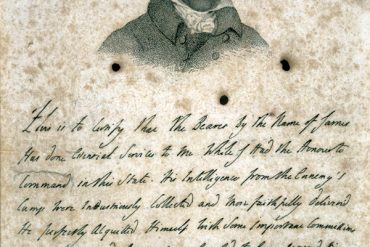 This is to Certify that The Bearer By the Name of James
Has done Essential Services to Me While I Had the Honour to
Command in this State. His Intelligences from the Enemy's
Camp were Industriously Collected and More faithfully deliver'd
He perfectly Acquitted Himself with Some Important Commissions